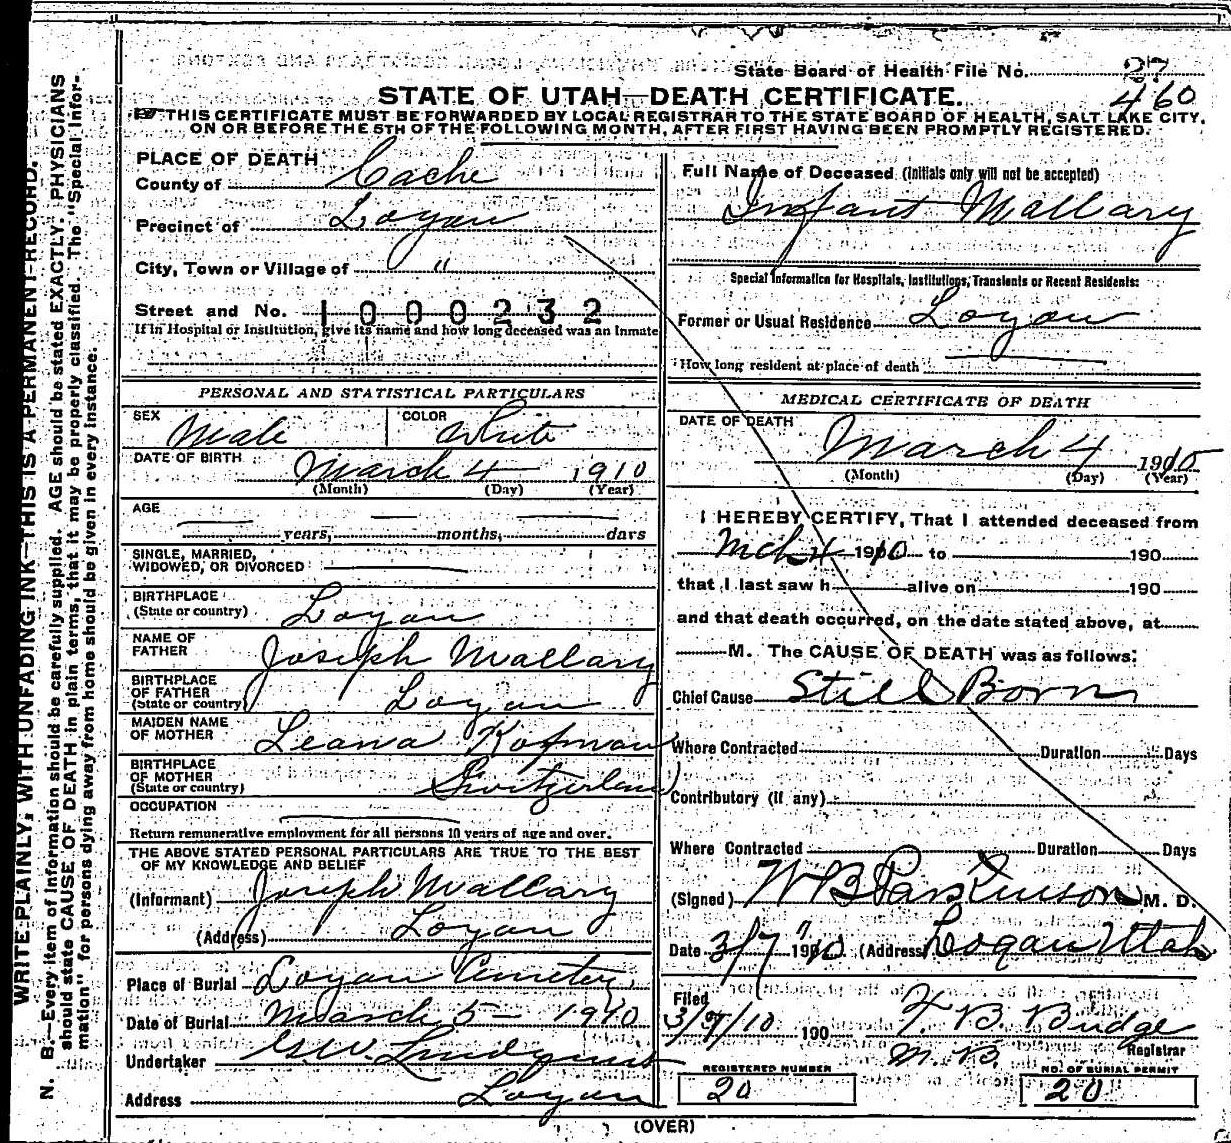 State Board of Health File No. 27
460
STATE OF UTAH—DEATH CERTIFICATE.
THIS CERTIFICATE MUST BE FORWARDED BY LOCAL REGISTRAR TO THE STATE BOARD OF HEALTH, SALT LAKE CITY,
ON OR BEFORE THE 5TH OF THE FOLLOWING MONTH, AFTER FIRST HAVING BEEN PROMPTLY REGISTERED.
WRITE PLAINLY, WITH UNFADING INK—THIS IS A PERMANENT RECORD.
N. B.—Every item of information should be carefully supplied. AGE should be stated EXACTLY. PHYSICIANS
should state CAUSE OF DEATH in plain terms, that it may be properly classified. The "Special Infor-
mation" for persons dying away from home should be given in every instance.
PLACE OF DEATH
County of Cache
Precinct of Logan
City, Town or Village of "
Street and No. 1000232
If in Hospital or Institution, give its name and how long deceased was an inmate
PERSONAL AND STATISTICAL PARTICULARS
SEX Male COLOR White
DATE OF BIRTH March 4 1910
(Month) (Day) (Year)
AGE
years, months, days
SINGLE, MARRIED,
WIDOWED, OR DIVORCED
BIRTHPLACE
(State or country) Logan
NAME OF
FATHER Joseph Mallary
BIRTHPLACE
OF FATHER
(State or country) Logan
MAIDEN NAME
OF MOTHER Leana Kofman
BIRTHPLACE
OF MOTHER
(State or country) Switzerland
OCCUPATION
Return remunerative employment for all persons 10 years of age and over.
THE ABOVE STATED PERSONAL PARTICULARS ARE TRUE TO THE BEST
OF MY KNOWLEDGE AND BELIEF
(Informant) Joseph Mallary
(Address) Logan
Place of Burial Logan Cemetery
Date of Burial March 5 — 1910
Undertaker G W. Lindquist
Address Logan
Full Name of Deceased (Initials only will not be accepted)
Infant Mallary
Special Information for Hospitals, Institutions, Transients or Recent Residents:
Former or Usual Residence Logan
How long resident at place of death
MEDICAL CERTIFICATE OF DEATH
DATE OF DEATH March 4 1910
(Month) (Day) (Year)
I HEREBY CERTIFY, That I attended deceased from
Mch 4 1910 to 190
that I last saw h alive on 190
and that death occurred, on the date stated above, at
M. The CAUSE OF DEATH was as follows:
Chief Cause Still Born
Where Contracted Duration Days
Contributory (if any)
Where Contracted Duration Days
(Signed) W B Parkinson M. D.
Date 3/7 1910 (Address) Logan Utah
Filed
3/9/10 190 F. B. Budge
M. B. Registrar
REGISTERED NUMBER
20
NO. OF BURIAL PERMIT
20
(OVER)